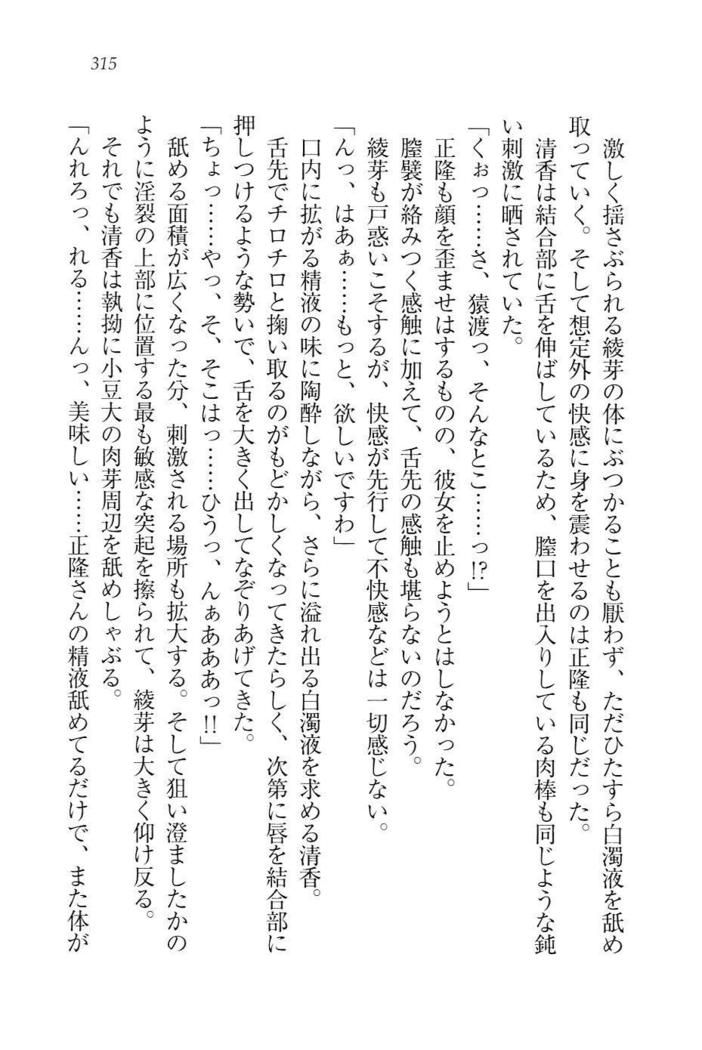 315
激しく揺さぶられる綾芽の体にぶつかることも厭わず、ただひたすら白濁液を舐め
取っていく。そして想定外の快感に身を震わせるのは正隆も同じだった。
清香は結合部に舌を伸ばしているため、膣口を出入りしている肉棒も同じような鈍
い刺激に晒されていた。
「くぉっ……さ、猿渡っ、そんなとこ……っ!?」
正隆も顔を歪ませはするものの、彼女を止めようとはしなかった。
膣襞が絡みつく感触に加えて、舌先の感触も堪らないのだろう。
綾芽も戸惑いこそするが、快感が先行して不快感などは一切感じない。
「んっ、はあぁ……もっと、欲しいですわ」
口内に拡がる精液の味に陶酔しながら、さらに溢れ出る白濁液を求める清香。
舌先でチロチロと掬い取るのがもどかしくなってきたらしく、次第に唇を結合部に
押しつけるような勢いで、舌を大きく出してなぞりあげてきた。
「ちょっ……やっ、そ、そこはっ……ひうっ、んぁあああっ!!」
舐める面積が広くなった分、刺激される場所も拡大する。そして狙い澄ましたかの
ように淫裂の上部に位置する最も敏感な突起を擦られて、綾芽は大きく仰け反る。
それでも清香は執拗に小豆大の肉芽周辺を舐めしゃぶる。
「んれろっ、れる……んっ、美味しい……正隆さんの精液舐めてるだけで、また体が